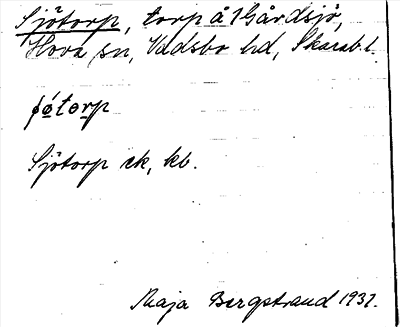 Sjötorp, torp å Gårdsjö,
Hova sn, Vadsbo hd, Skarab.l.
ʃø̀tor̀p
Sjötorp ek, kb.
Maja Bergstrand 1937.